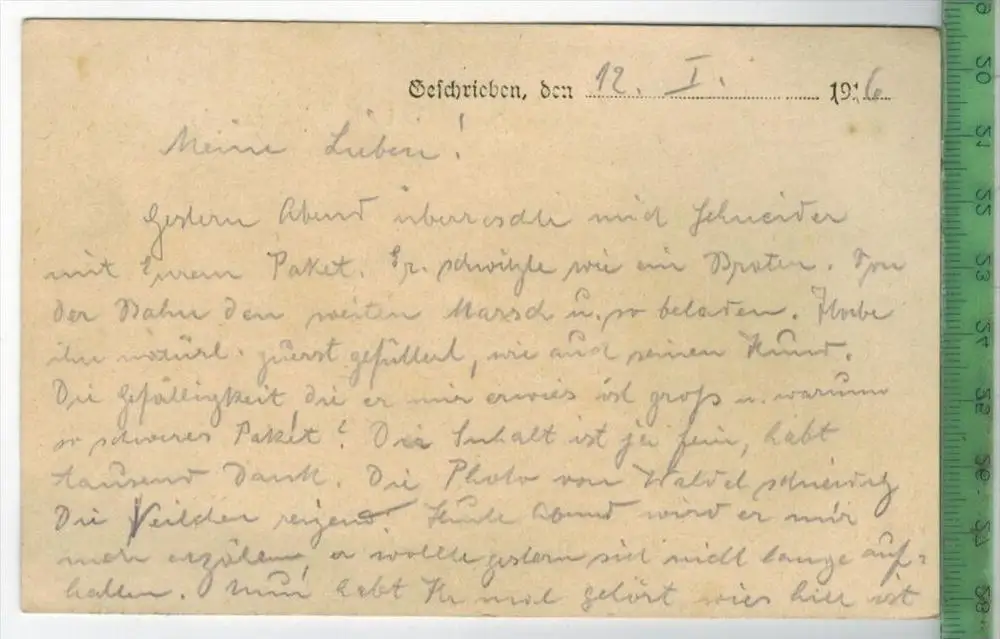 Geschrieben, den 12. I. 1916
Meine Lieben!
Gestern Abend überraschte mich Schneider
mit Eurem Paket. Er schwitzte wie ein Braten. Von
der Bahn den weiten Marsch u. so beladen. Habe
ihn natürl. zuerst gefüttert, wie auch seinen Hund.
Die Gefälligkeit die er mir erwies ist groß u. warum
so schweres Paket? Der Inhalt ist ja fein, habt
tausend Dank. Die Photo von Waldel schneidig
Die Veilchen reizend. Heute Abend wird er mir
mehr erzählen, er wollte gestern sich nicht lange auf=
halten. Nun habt Ihr mal gehört wies hier ist